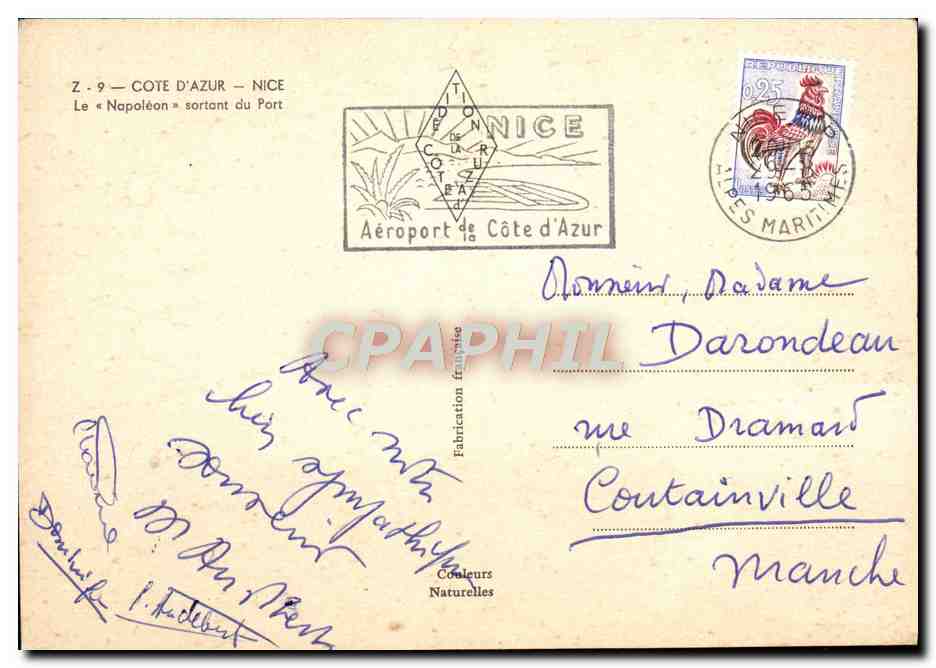 Z - 9 — COTE D'AZUR — NICE
Le « Napoléon » sortant du Port
ÉDITION
DE LA
CÔTE d'AZUR
NICE
Aéroport de la Côte d'Azur
0,25
NICE
1963
ALPES MARITIMES
CPAPHIL
Fabrication française
Couleurs
Naturelles
Monsieur, Madame
Darondeau
rue Dramard
Coutainville
Manche
Avec notre
bien sympathique
souvenir
Dominique